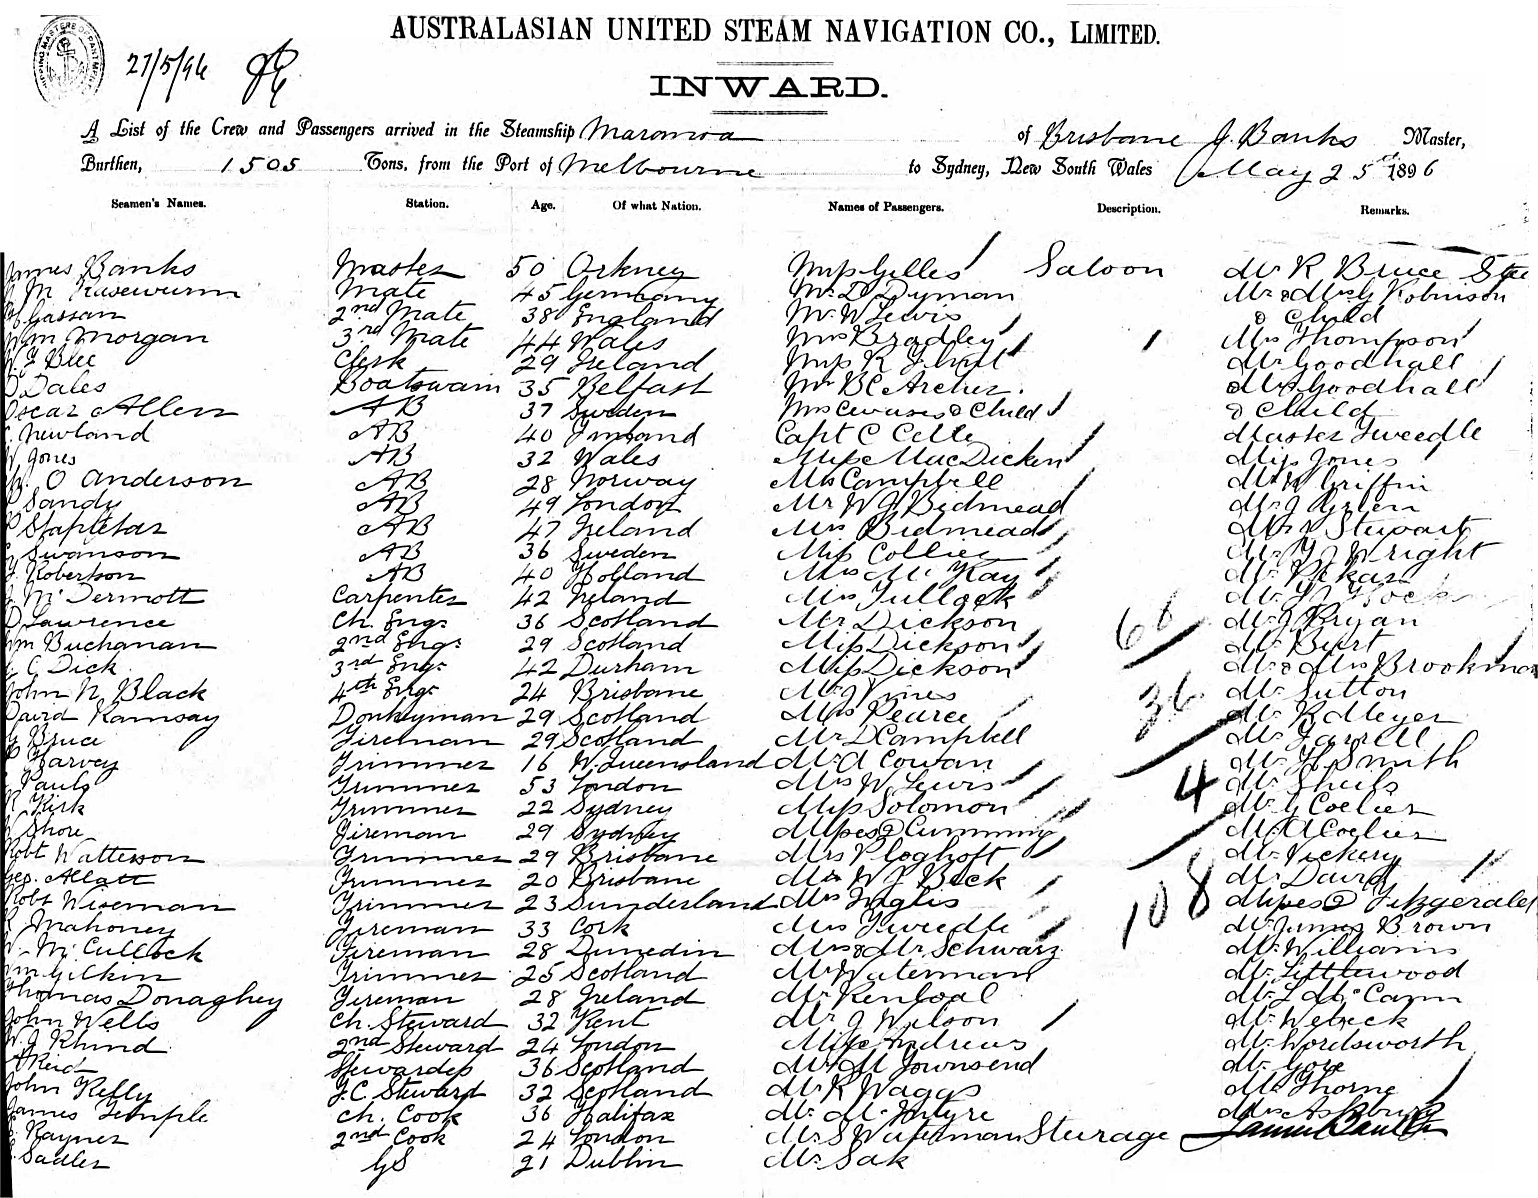 AUSTRALASIAN UNITED STEAM NAVIGATION CO., LIMITED.
27/5/96
INWARD.
A List of the Crew and Passengers arrived in the Steamship Maranoa of Brisbane J. Banks Master,
Burthen, 1505 Tons, from the Port of Melbourne to Sydney, New South Wales May 25th 1896
Seamen's Names. Station. Age. Of what Nation. Names of Passengers. Description. Remarks.
James Banks Master 50 Orkney Miss Gilles Saloon Mr R Bruce
M Kasewurm Mate 45 Germany Mr D Dyman Mr & Mrs G Robinson
Gassan 2nd Mate 38 England Mr W Lewis & Child
Wm Morgan 3rd Mate 44 Wales Mrs Bradley Mrs Thompson
Blee Clerk 29 Ireland Miss R Flint Mr Goodhall
Dales Boatswain 35 Belfast Mr B C Archer. Mrs Goodhall
Oscar Allen AB 37 Sweden Mrs & Child & Child
Newland AB 40 Capt C Celle Master Tweedle
W Jones AB 32 Wales Miss MacDicken Miss Jones
O Anderson AB 28 Norway Campbell Mr Griffin
Sandy AB 49 London Mr W J Bidmead Mr J
Stapletar AB 47 Ireland Mrs Bidmead Stewart
Swanson AB 36 Sweden Miss Collier Mr Wright
Robertson AB 40 Holland Mrs McKay Mr
McDermott Carpenter 42 Ireland Mrs Tullock Mr
D Lawrence Ch. Engr 36 Scotland Mr Dickson 66 Mr J Bryan
Wm Buchanan 2nd Engr 29 Scotland Miss Dickson Mr Burt
C Dick 3rd Engr 42 Durham Miss Dickson Mr & Mrs Brookman
John N. Black 4th Engr 24 Brisbane Mr J Vines 36 Mr Sutton
David Ramsay Donkeyman 29 Scotland Mrs Pearce Mr R Meyer
Bruce Fireman 29 Scotland Mr D Campbell Mr Farrell
Harvey Trimmer 16 W. Queensland Mr A Cowan Mr H Smith
Pauls Trimmer 53 London Mrs W Lewis 4 Mr Sheils
R Kirk Trimmer 22 Sydney Miss Solomon Mr G Coelier
W Shore Fireman 29 Sydney Misses 2 Cumming Mr A Coelier
Robt Watterson Trimmer 29 Brisbane Mrs Ploghoft Mr Vickery
Geo. Allatt Trimmer 20 Brisbane Mr W J Beck 108 Mr David
Robt Wiseman Trimmer 23 Sunderland Mrs Inglis Misses 2 Fitzgerald
Mahoney Fireman 33 Cork Mrs Tweedle Mr James Brown
W. McCullock Fireman 28 Dunedin Mrs & Mr Schwarz Mr Williams
Wm Gilkin Trimmer 25 Scotland Mr Waterman Mr Littlewood
Thomas Donaghey Fireman 28 Ireland Mr Mr L McCann
John Wells Ch. Steward 32 Kent Mr J Wilson Mr Welreck
W. J Khind 2nd Steward 24 London Miss Andrews Mr Wordsworth
A Reid Stewardess 36 Scotland Mr M Townsend Mr Gore
John Kelly F.C. Steward 32 Scotland Mr R Waggs Mrs Thorne
James Temple Ch. Cook 36 Halifax Mr McIntyre Mrs Ashbury
Rayner 2nd Cook 24 London Mr S Waterman Steerage
Sadler GS 21 Dublin Mr Sak